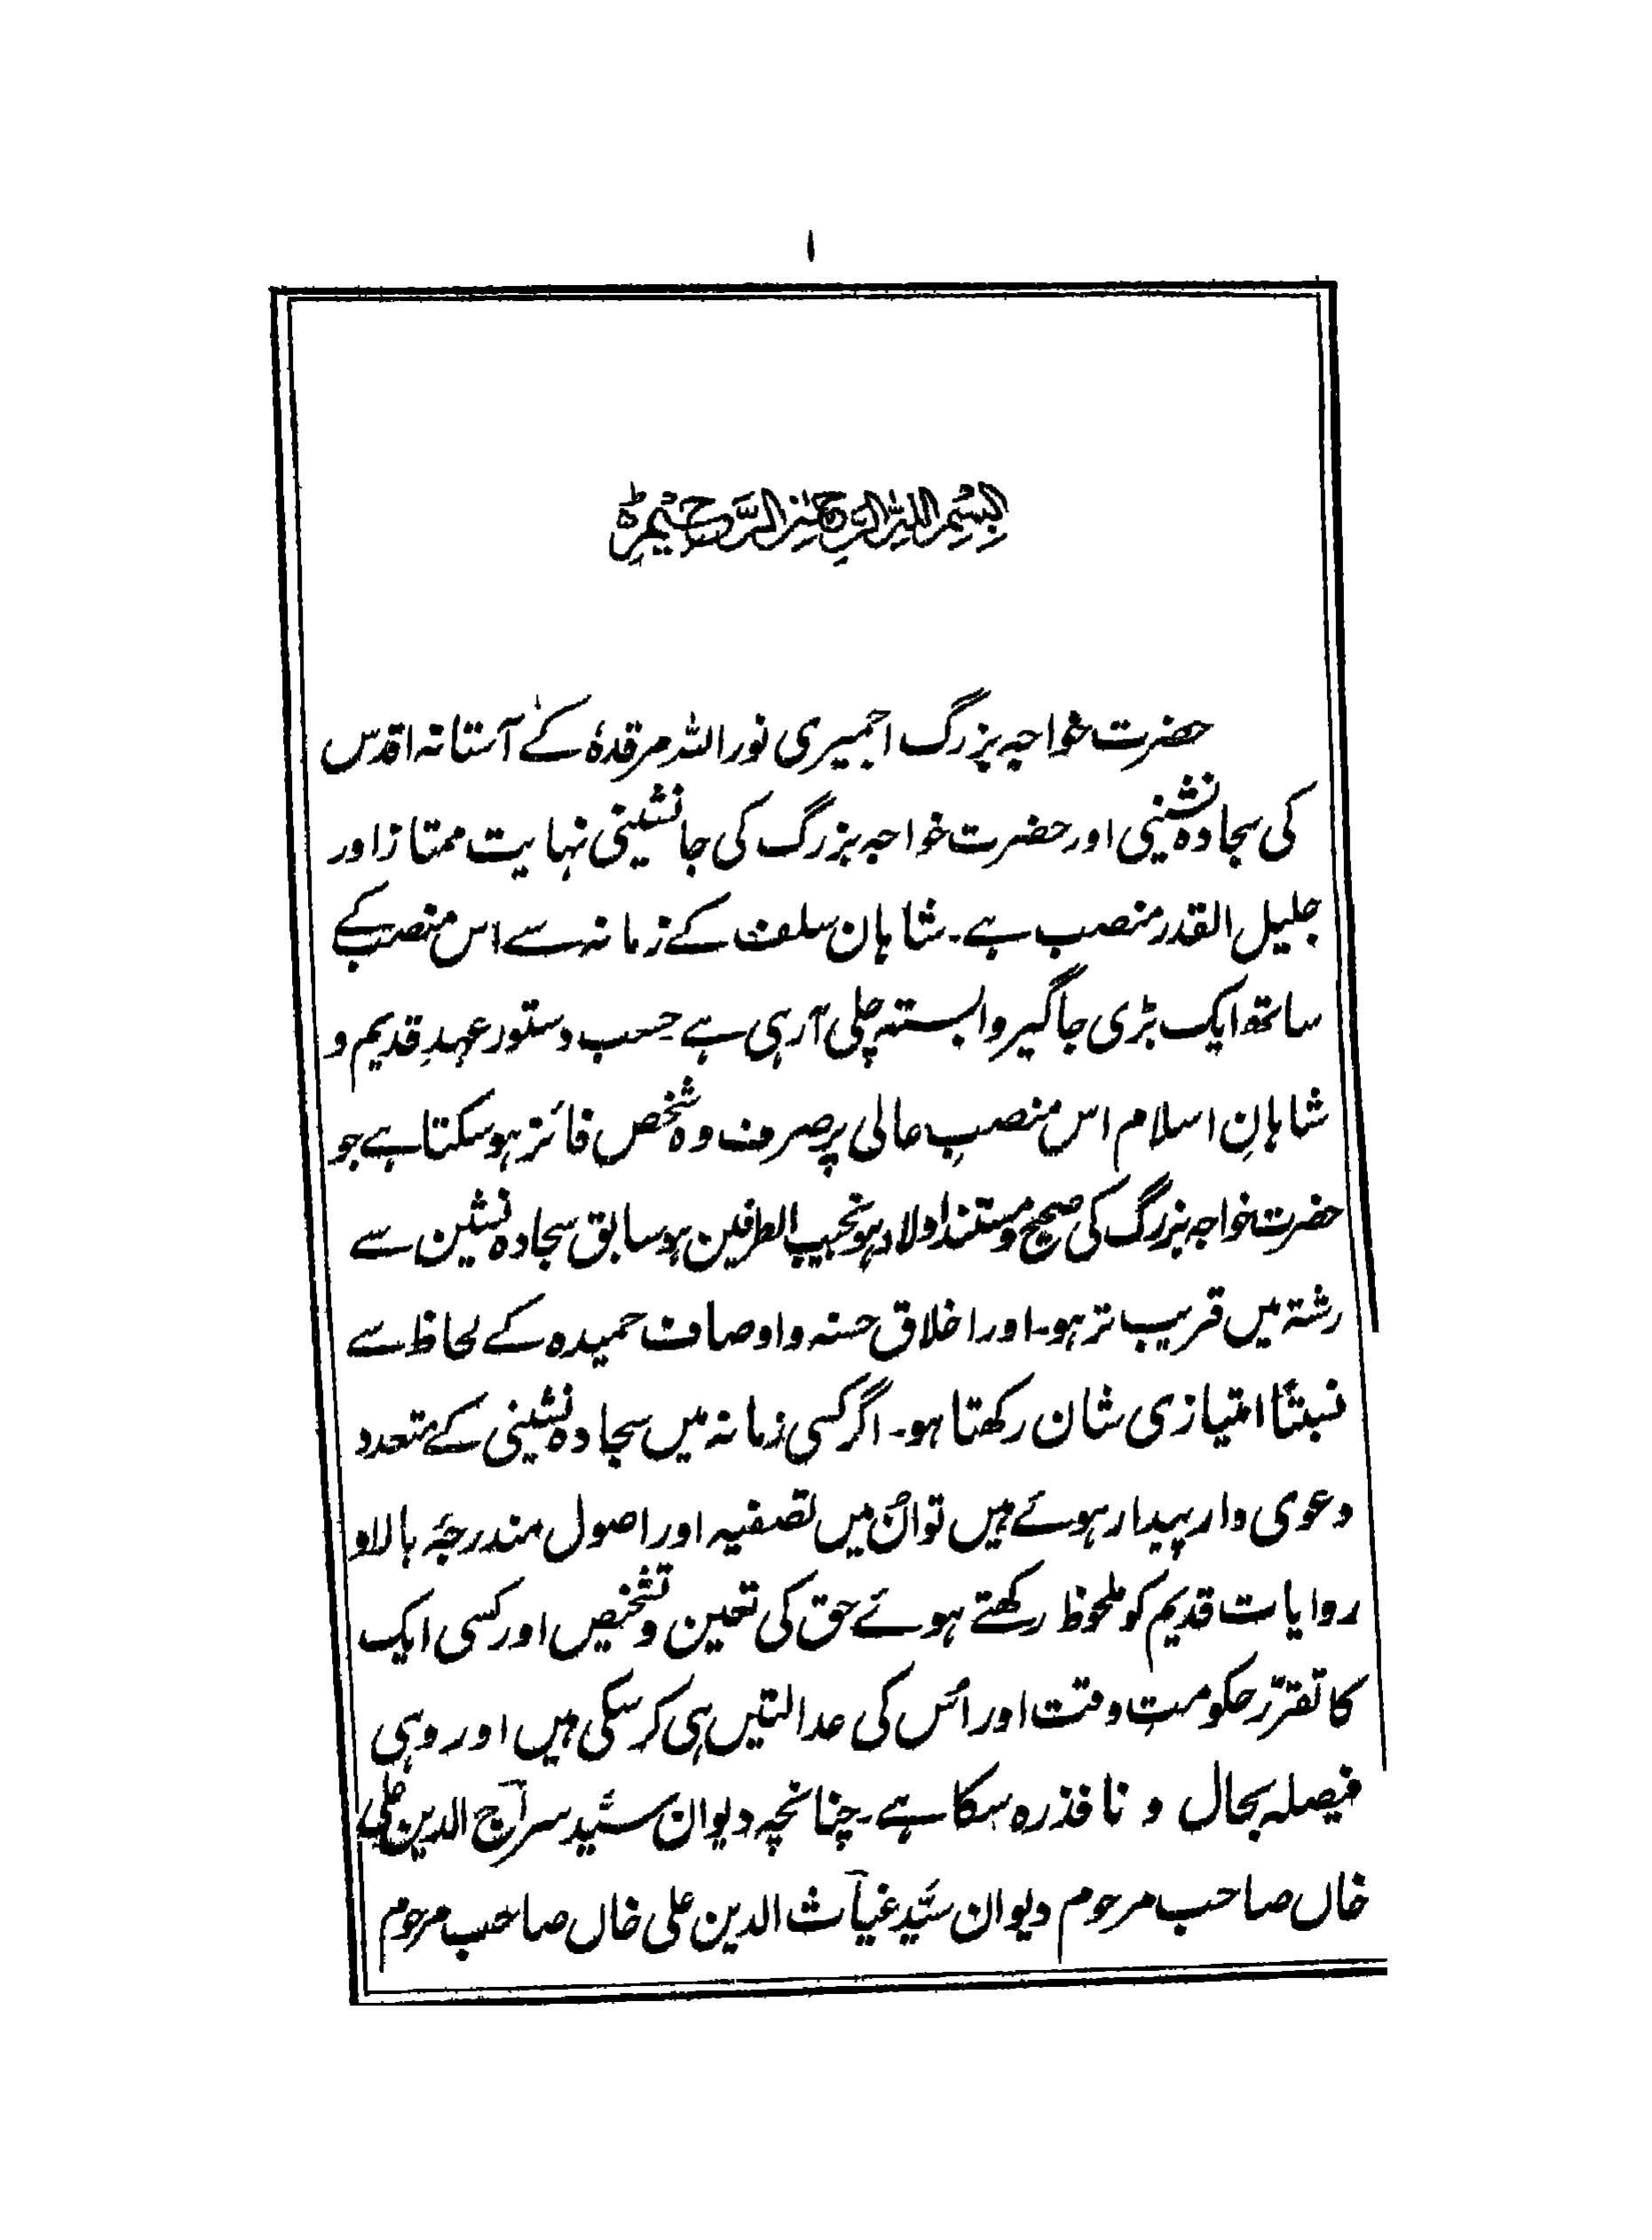 ۱
بِسْمِ اللهِ الرَّحْمٰنِ الرَّحِيْمِ ؕ
حضرت خواجہ بزرگ اجمیری نور اللہ مرقدہٗ کے آستانہ اقدس
کی سجادہ نشینی اور حضرت خواجہ بزرگ کی جانشینی نہایت ممتاز اور
جلیل القدر منصب ہے۔ شاہان سلف کے زمانہ سے اس منصب کے
ساتھ ایک بڑی جاگیر وابستہ چلی آرہی ہے حسب دستور عہدِ قدیم و
شاہانِ اسلام اس منصبِ عالی پر صرف وہ شخص فائز ہو سکتا ہے جو
حضرت خواجہ بزرگ کی صحیح و مستند اولاد ہو نجیب الطرفین ہو سابق سجادہ نشین سے
رشتہ میں قریب تر ہو۔ اور اخلاق حسنہ و اوصاف حمیدہ کے لحاظ سے
نسبتًا امتیازی شان رکھتا ہو۔ اگر کسی زمانہ میں سجادہ نشینی کے متعدد
دعوی دار پیدا رہوئے ہیں تو اُن میں تصفیہ اور اصول مندرجۂ بالا و
روایات قدیم کو ملحوظ رکھتے ہوئے حق کی تعین و تشخیص اور کسی ایک
کا تقرّر حکومتِ وقت اور اُس کی عدالتیں ہی کر سکی ہیں اور وہی
فیصلہ بحال و نافذ رہ سکا ہے۔ چنانچہ دیوان سیّد سراج الدین علی
خاں صاحب مرحوم دیوان سیّد غیاث الدین علی خاں صاحب مرحوم